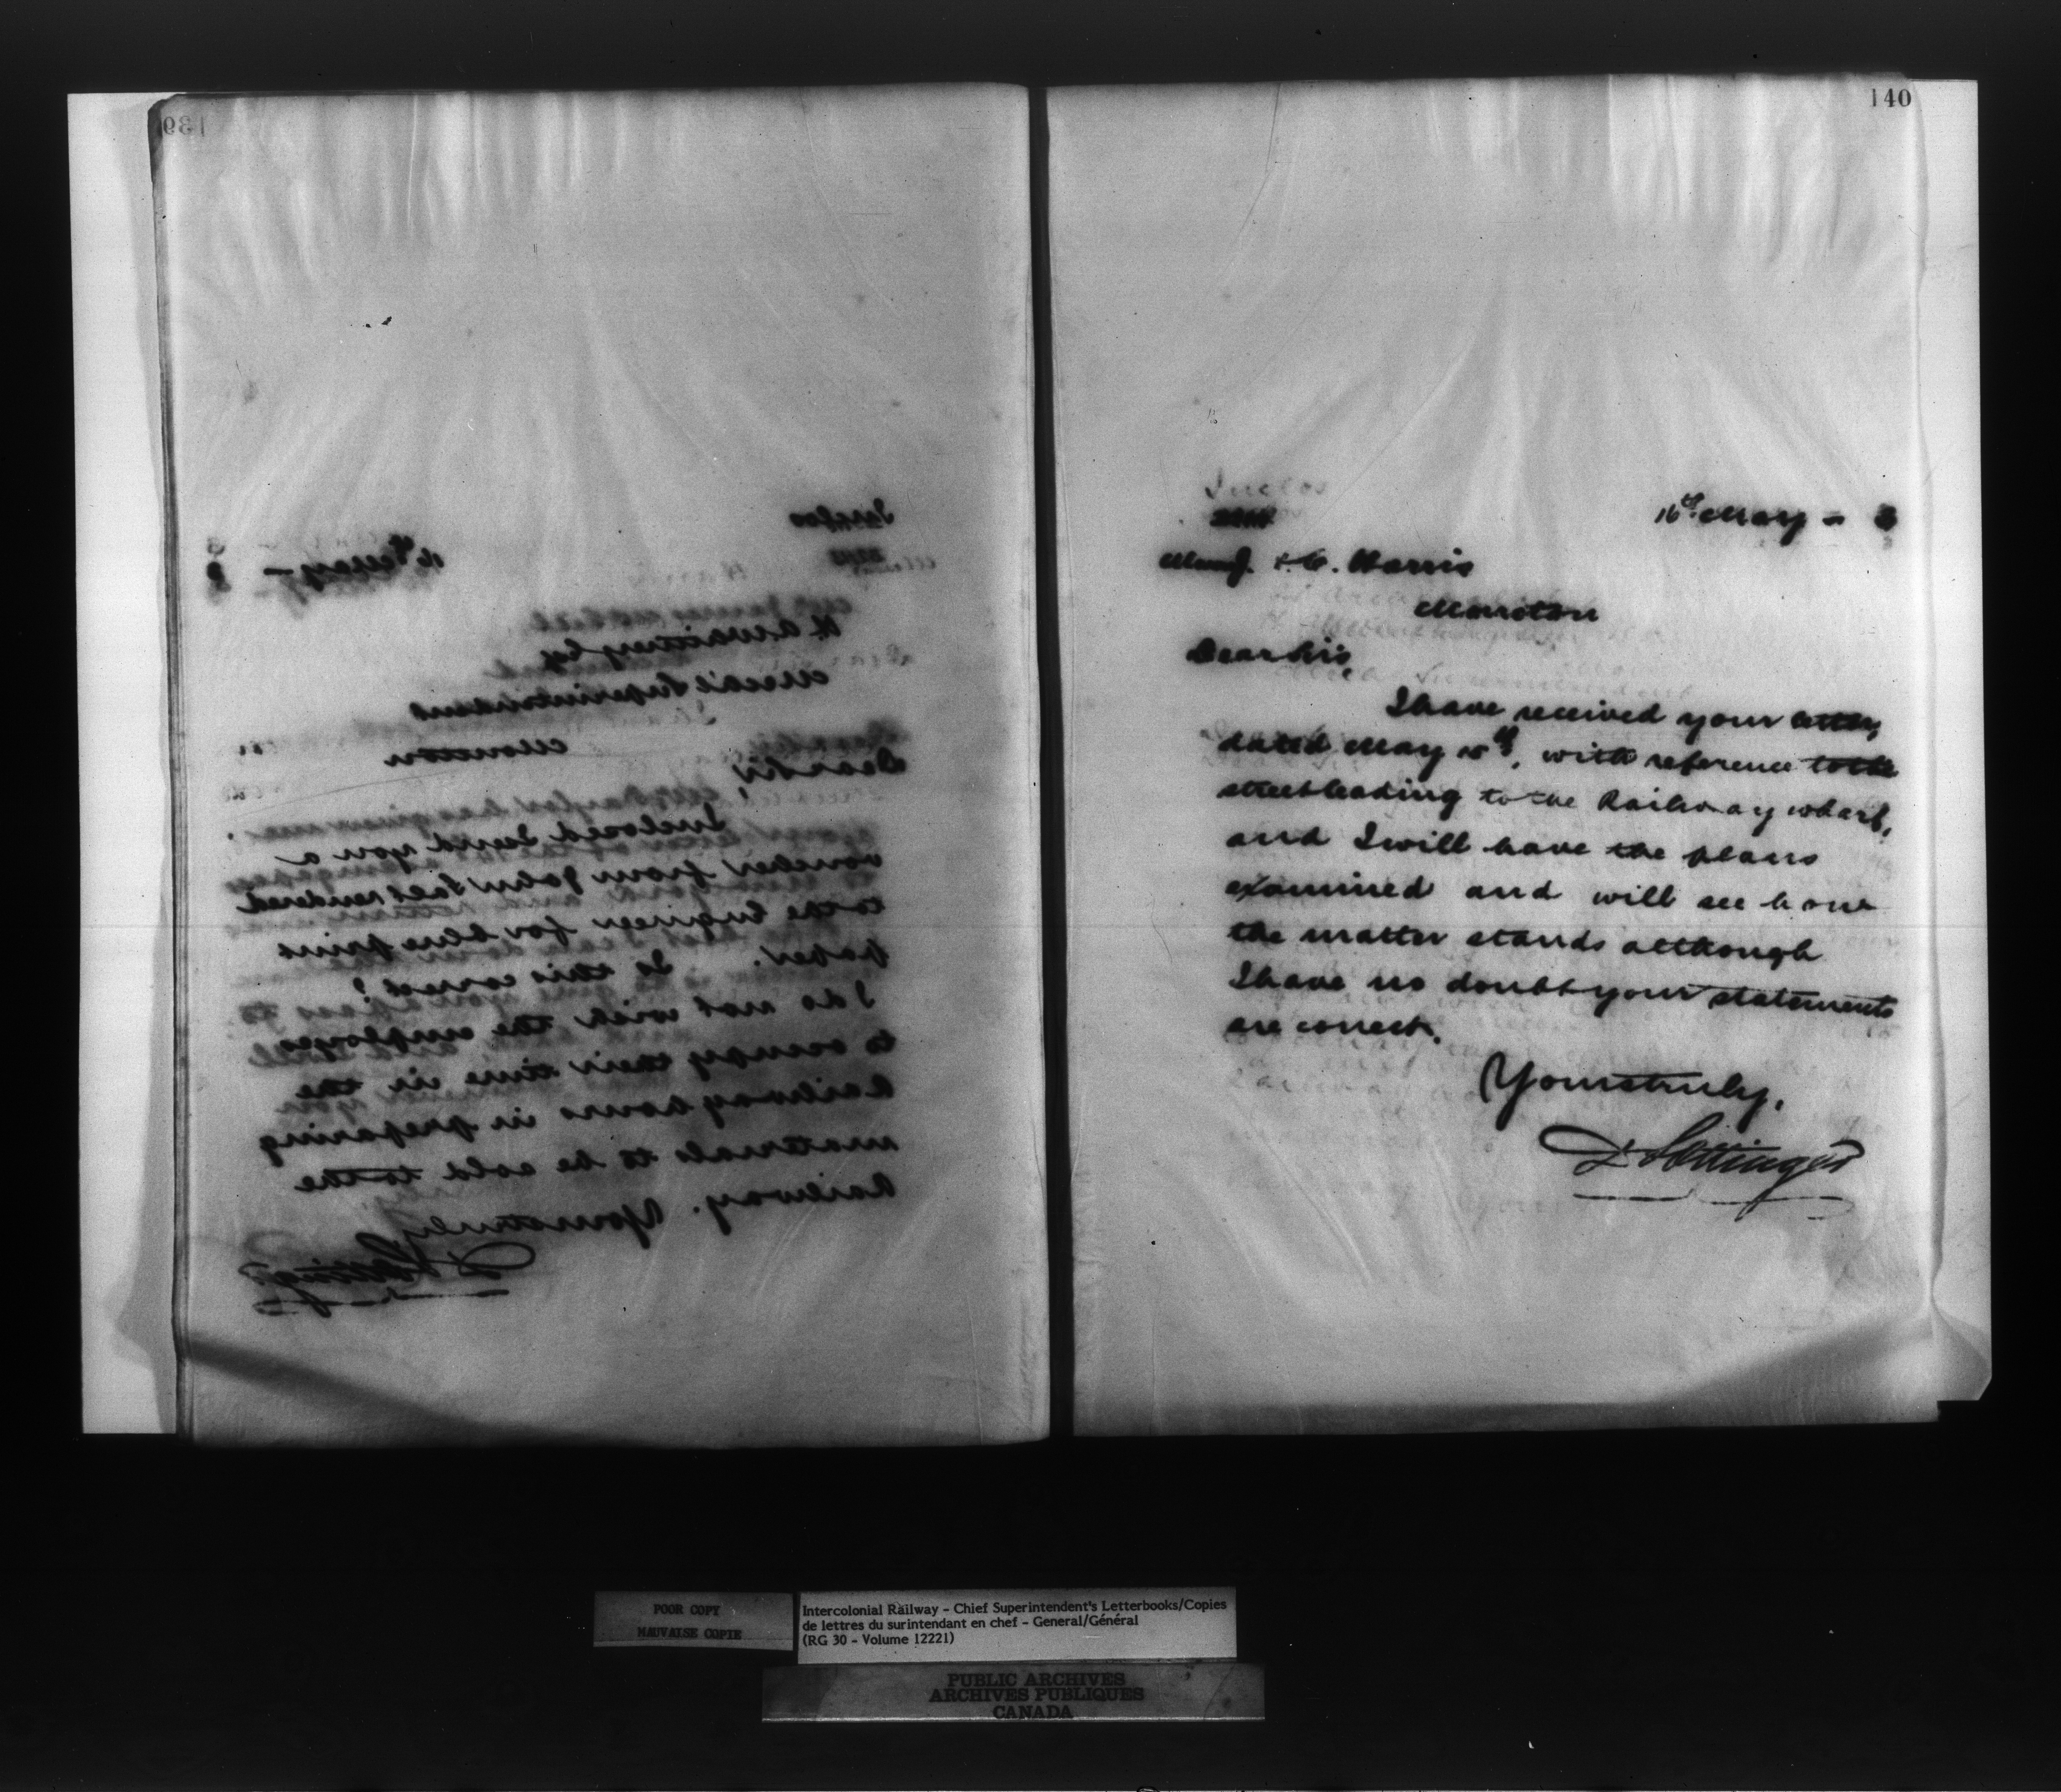 139
16th May – 3
Inclos
H A Whitney Esq
Mech'l Superintendent
Moncton
Dear Sir,
Inclosed I send you a
voucher from John Salt rendered
to the Engineer for blue print
paper. Is this correct?
I do not wish the employes
to occupy their time in the
Railway hours in preparing
materials to be sold to the
Railway. Yours truly
D Pottinger
140
16th May – 3
J. & C. Harris
Moncton
Dear Sirs,
I have received your letter,
dated May 15th, with reference to the
street leading to the Railway wharf,
and I will have the plans
examined and will see how
the matter stands although
I have no doubt your statements
are correct.
Yours truly,
D Pottinger
POOR COPY
MAUVAISE COPIE
Intercolonial Railway – Chief Superintendent's Letterbooks/Copies
de lettres du surintendant en chef – General/Général
(RG 30 – Volume 12221)
PUBLIC ARCHIVES
ARCHIVES PUBLIQUES
CANADA